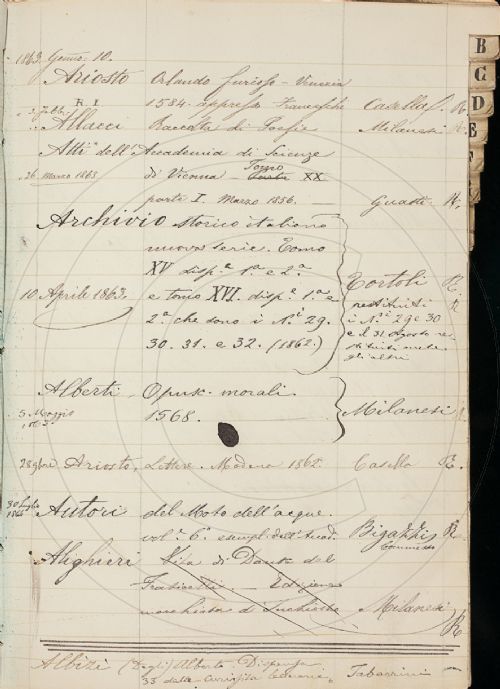 1863. Genno. 10.
Ariosto Orlando furioso - Venezia
R.I. 1584. appresso Franceschi Casella f. R.
Allacci Raccolta di Poesie Milanesi R.
Atti dell'Accademia di Scienze
26 Marzo 1863 di Vienna - Tomo XX
parte I. Marzo 1856. Guasti R.
Archivio storico italiano
nuova serie. Tomo
XV disp.ª 1.ª e 2.ª Tortoli R.
10 Aprile 1863. e tomo XVI. disp.ª 1.ª e restituiti R
2.ª che sono i N.i 29. i N.i 29 e 30
30. 31. e 32. (1862.) e il 31 Agosto re-
stituiti anche
gli altri
Alberti, Opusc. morali.
5 Maggio 1568. Milanesi
Ariosto, Lettere. Modena 1862. Casella R.
30 luglio Autori del Moto dell'acque.
vol.e 6.º Bigazzi R.
Alighieri Vita di Dante del
Fraticelli — Edizione
macchiata d'Inchiostro Milanesi
R
Albizi (Degli) Alberto. Dispensa
33 delle Curiosità Letterarie, Tabarrini
B
C
D
E
F